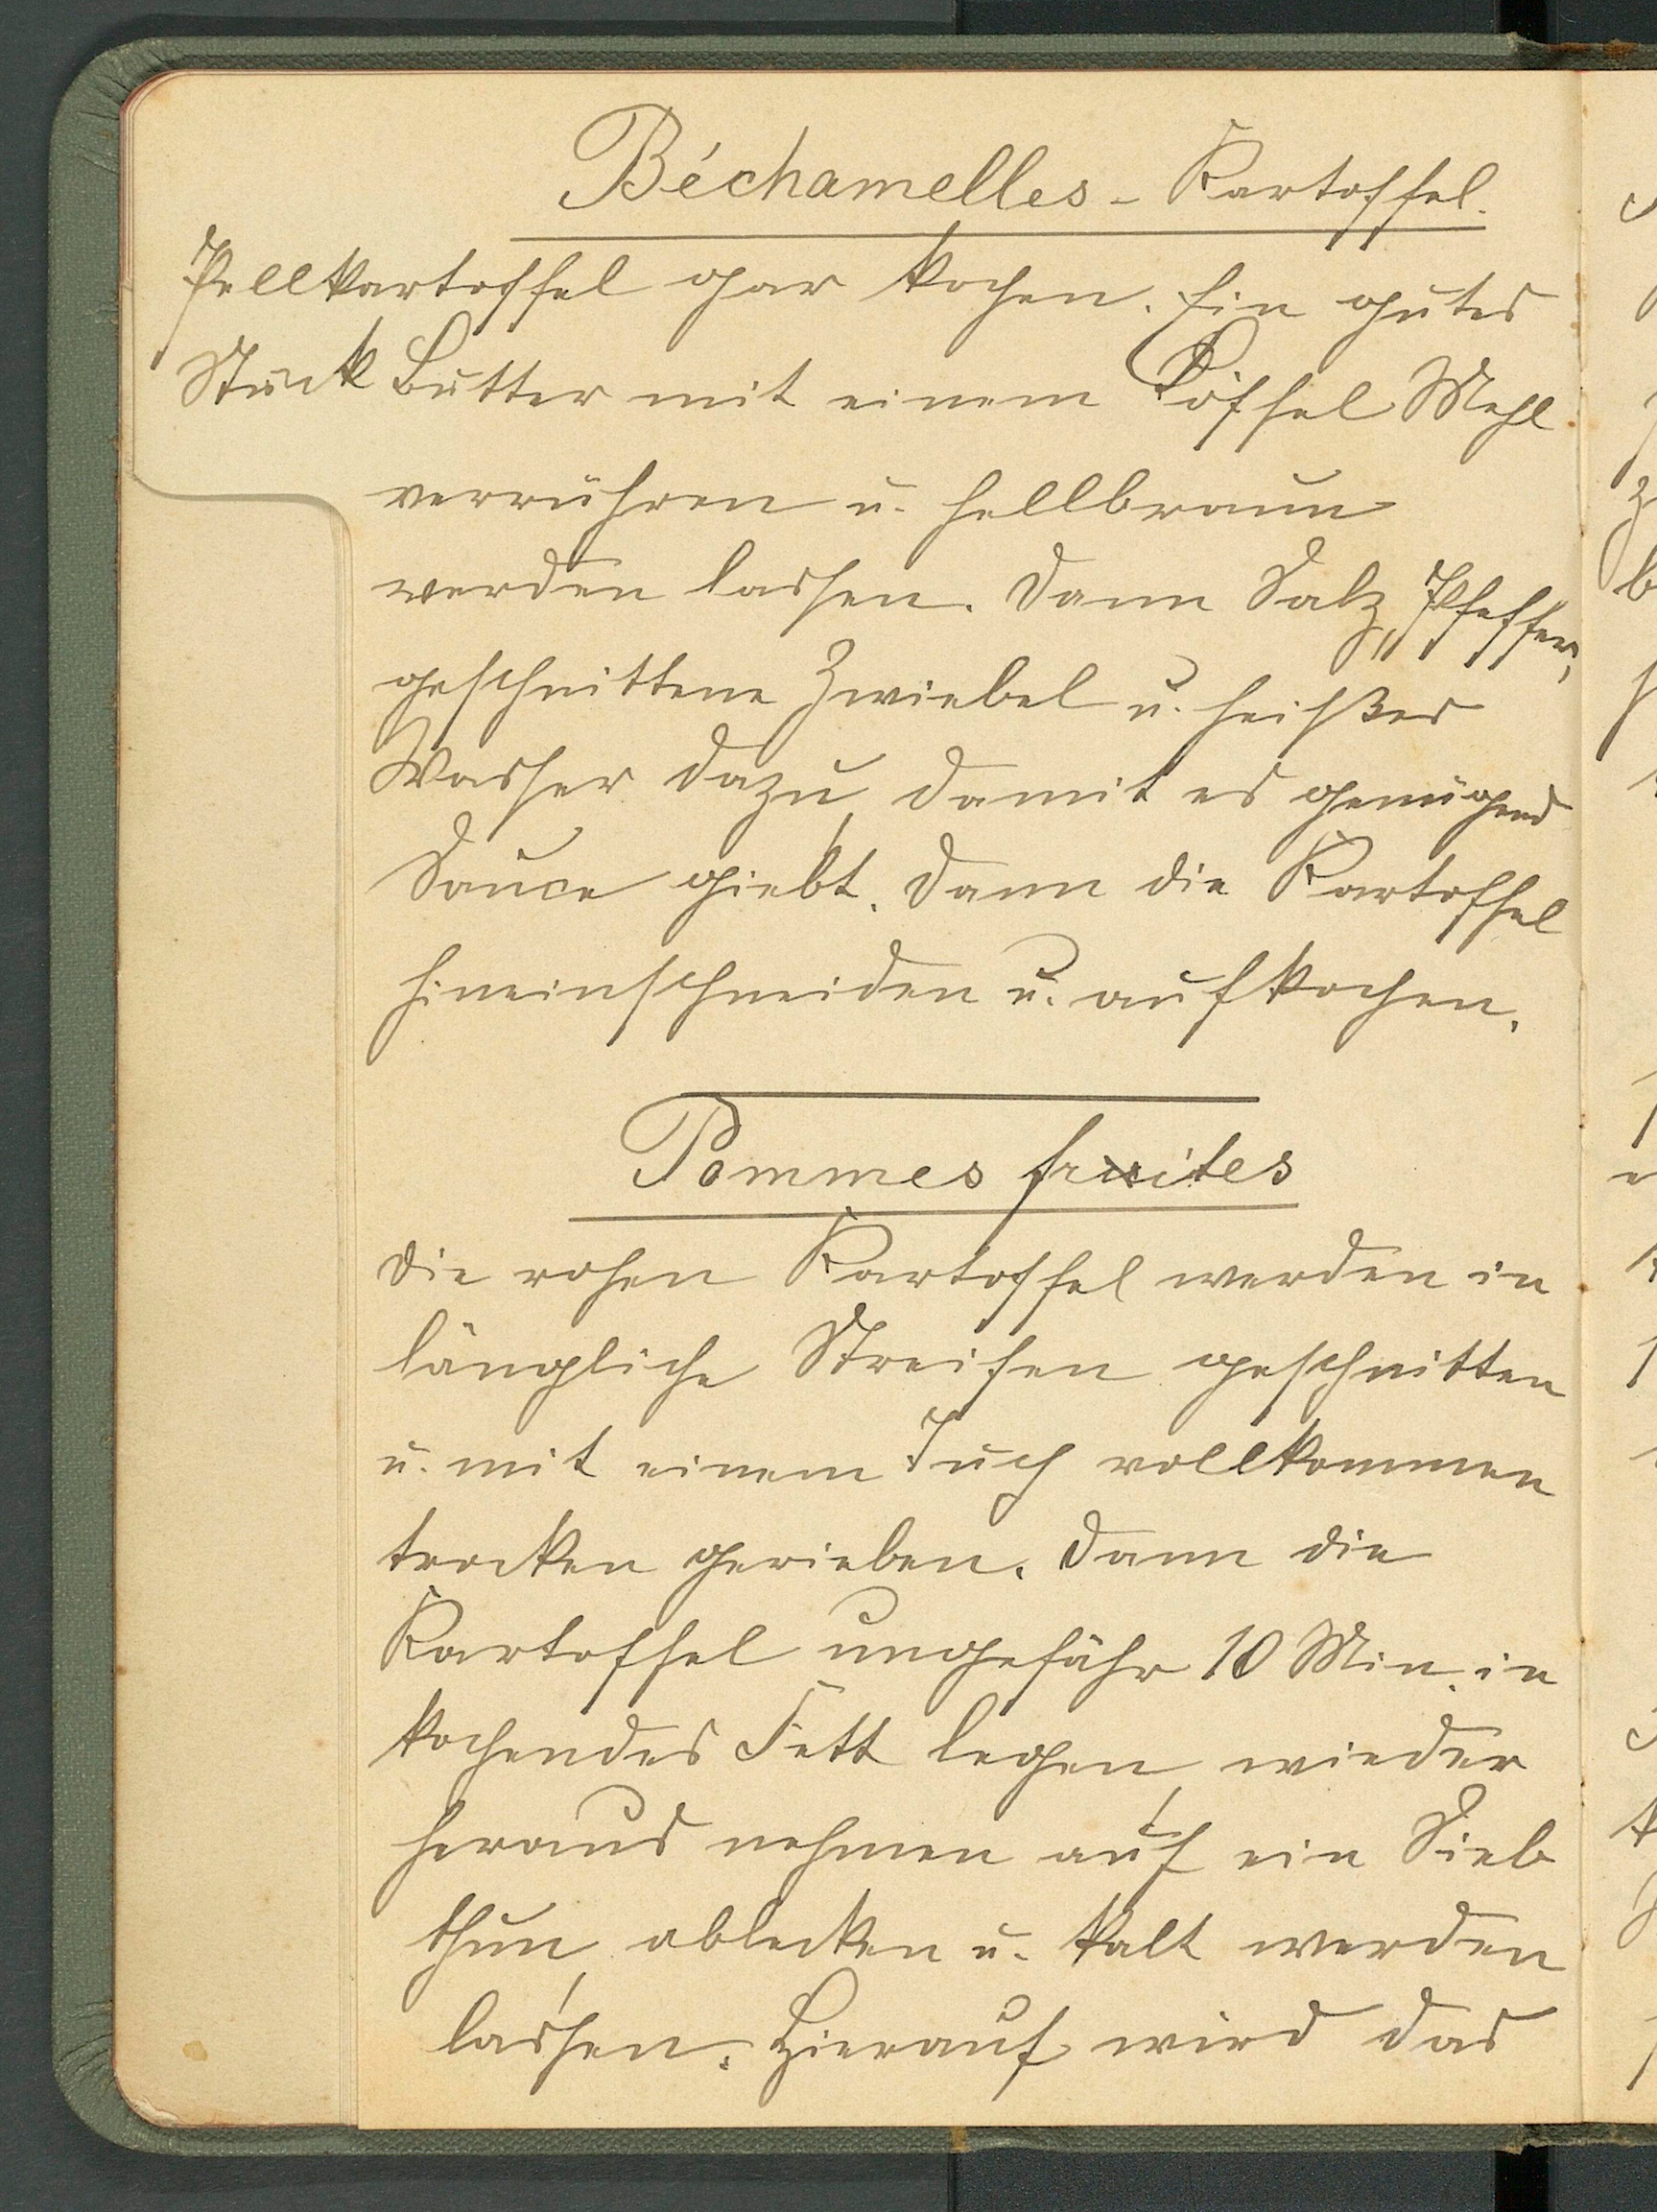 Béchamelles - Kartoffel.
Pellkartoffel gar kochen. Ein gutes
Stück Butter mit einem Löffel Mehl
verrühren u. hellbraun
werden lassen. Dann Salz, Pfeffer,
geschnittene Zwiebel u. heißes
Wasser dazu, damit es genügend
Sauce giebt. Dann die Kartoffel
hineinschneiden u. aufkochen.
Pommes frites
Die rohen Kartoffel werden in
längliche Streifen geschnitten
u. mit einem Tuch vollkommen
trocken gerieben. Dann die
Kartoffel ungefähr 10 Min. in
kochendes Fett legen, wieder
heraus nehmen auf ein Sieb
thun, ablecken u. kalt werden
lassen. Hierauf wird das